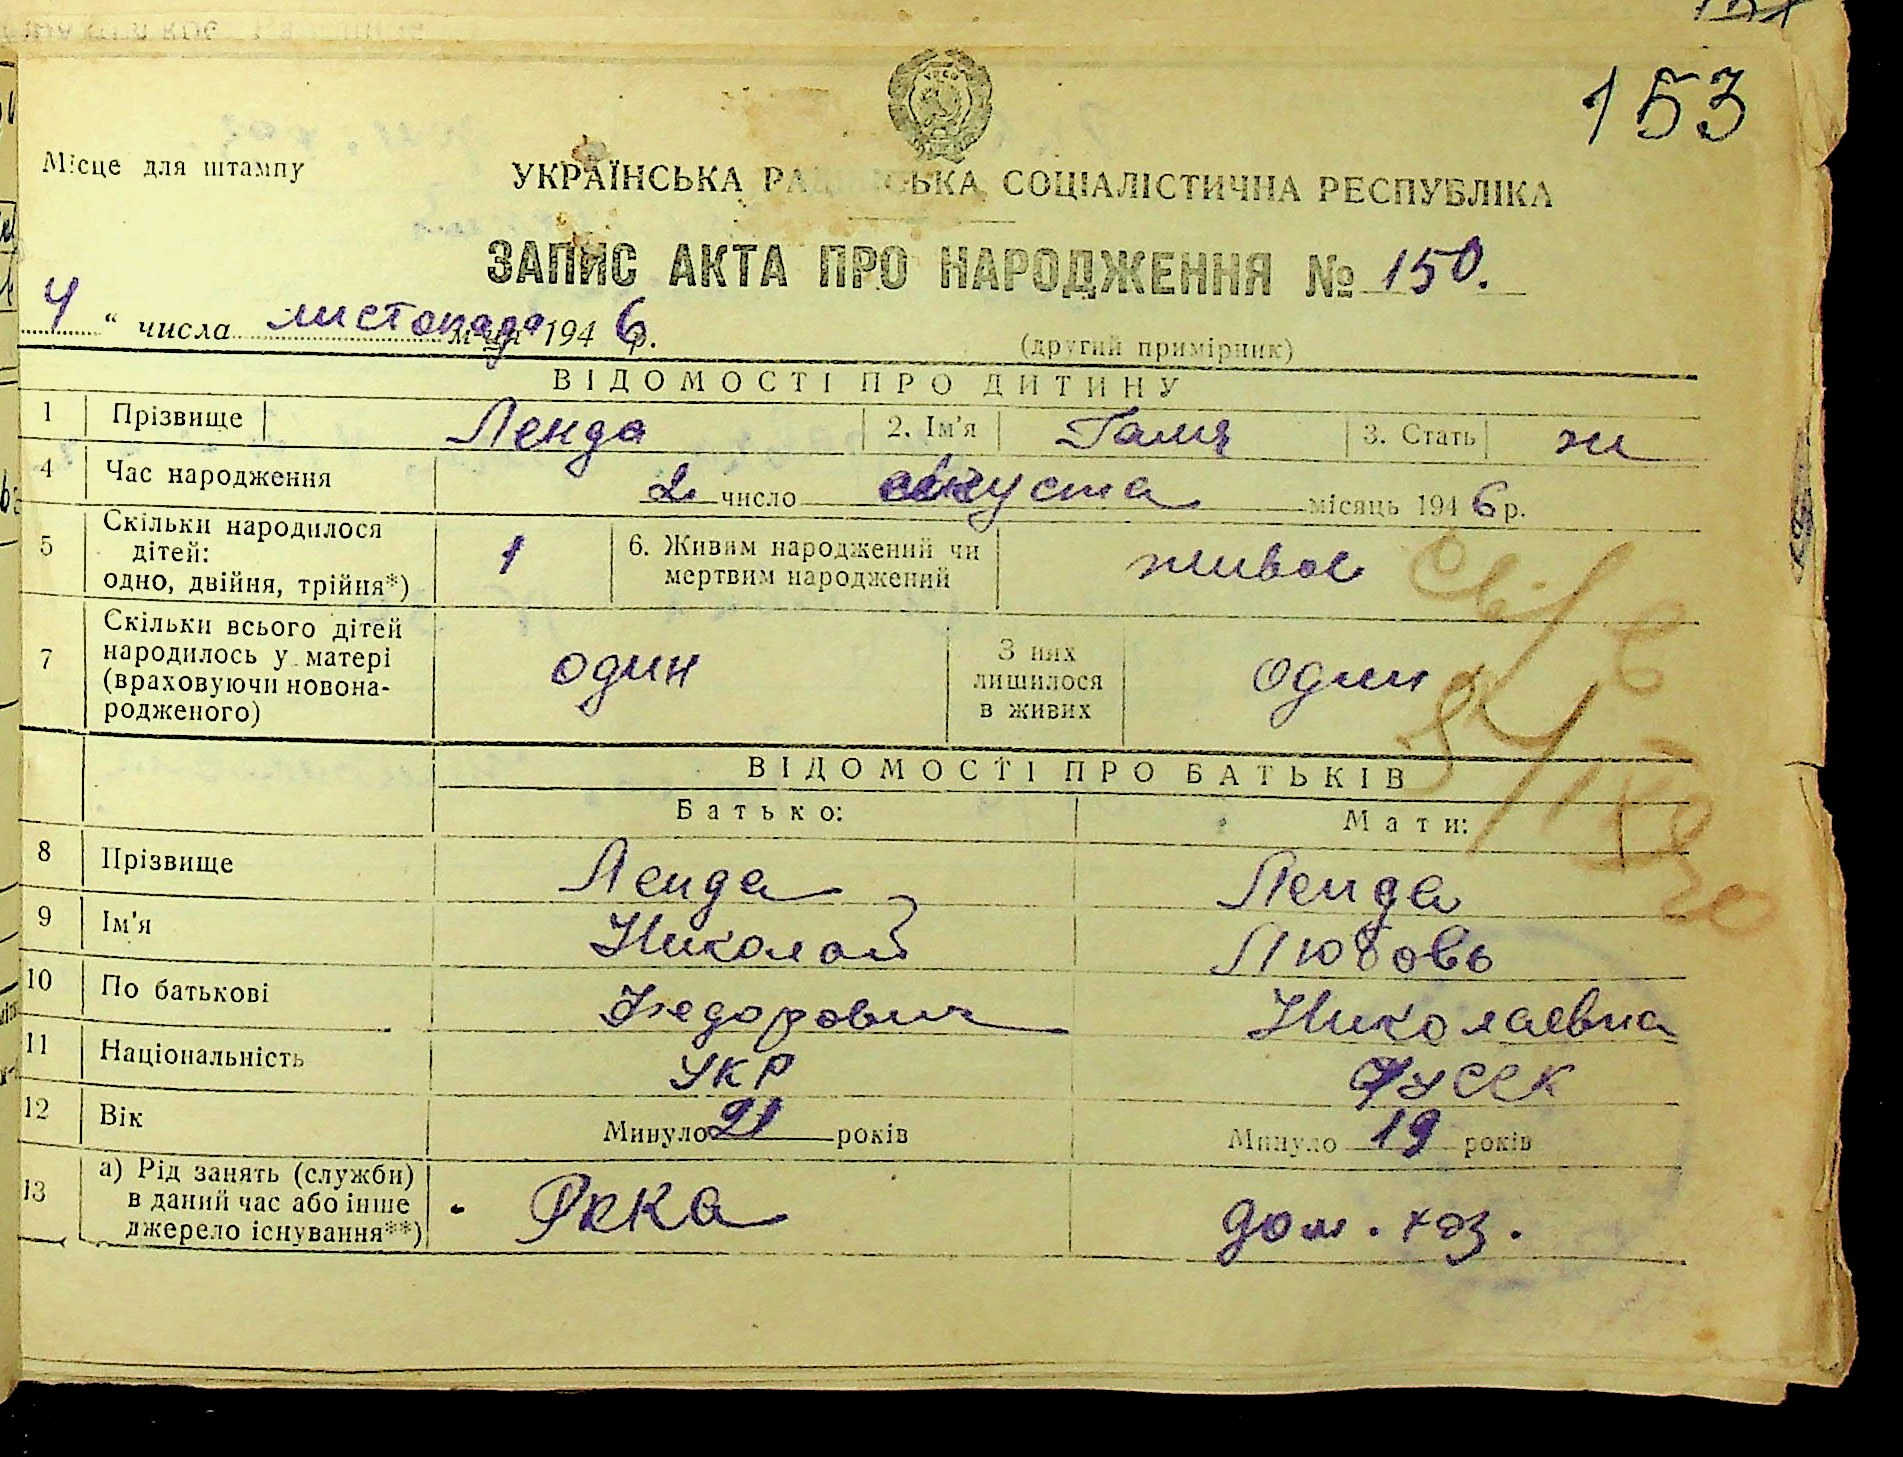 153
Місце для штампу
УКРАЇНСЬКА РАДЯНСЬКА СОЦІАЛІСТИЧНА РЕСПУБЛІКА
ЗАПИС АКТА ПРО НАРОДЖЕННЯ № 150.
4 “ числа листопада м-ця 1946 р.
(другий примірник)
ВІДОМОСТІ ПРО ДИТИНУ
1 Прізвище Ленда 2. Ім'я Галя 3. Стать ж
4 Час народження 2 число августа місяць 1946 р.
5 Скільки народилося дітей: одно, двійня, трійня*) 1 6. Живим народжений чи мертвим народжений живое
7 Скільки всього дітей народилось у матері (враховуючи новонародженого) один З них лишилося в живих один
ВІДОМОСТІ ПРО БАТЬКІВ
Батько: Мати:
8 Прізвище Ленда Ленда
9 Ім'я Николай Любовь
10 По батькові Федорович Николаевна
11 Національність укр русск
12 Вік Минуло 21 років Минуло 19 років
13 а) Рід занять (служби) в даний час або інше джерело існування**) Ркка дом. хоз.